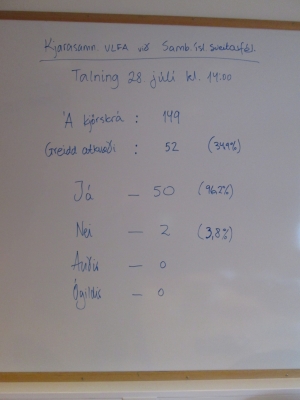 Kjarasamn. VLFA við Samb. ísl. sveitarfél.
Talning 28 júlí kl. 14:00
Á kjörskrá : 149
Greidd atkvæði : 52 (34,9%)
Já – 50 (96,2%)
Nei – 2 (3,8%)
Auðir – 0
Ógildir – 0